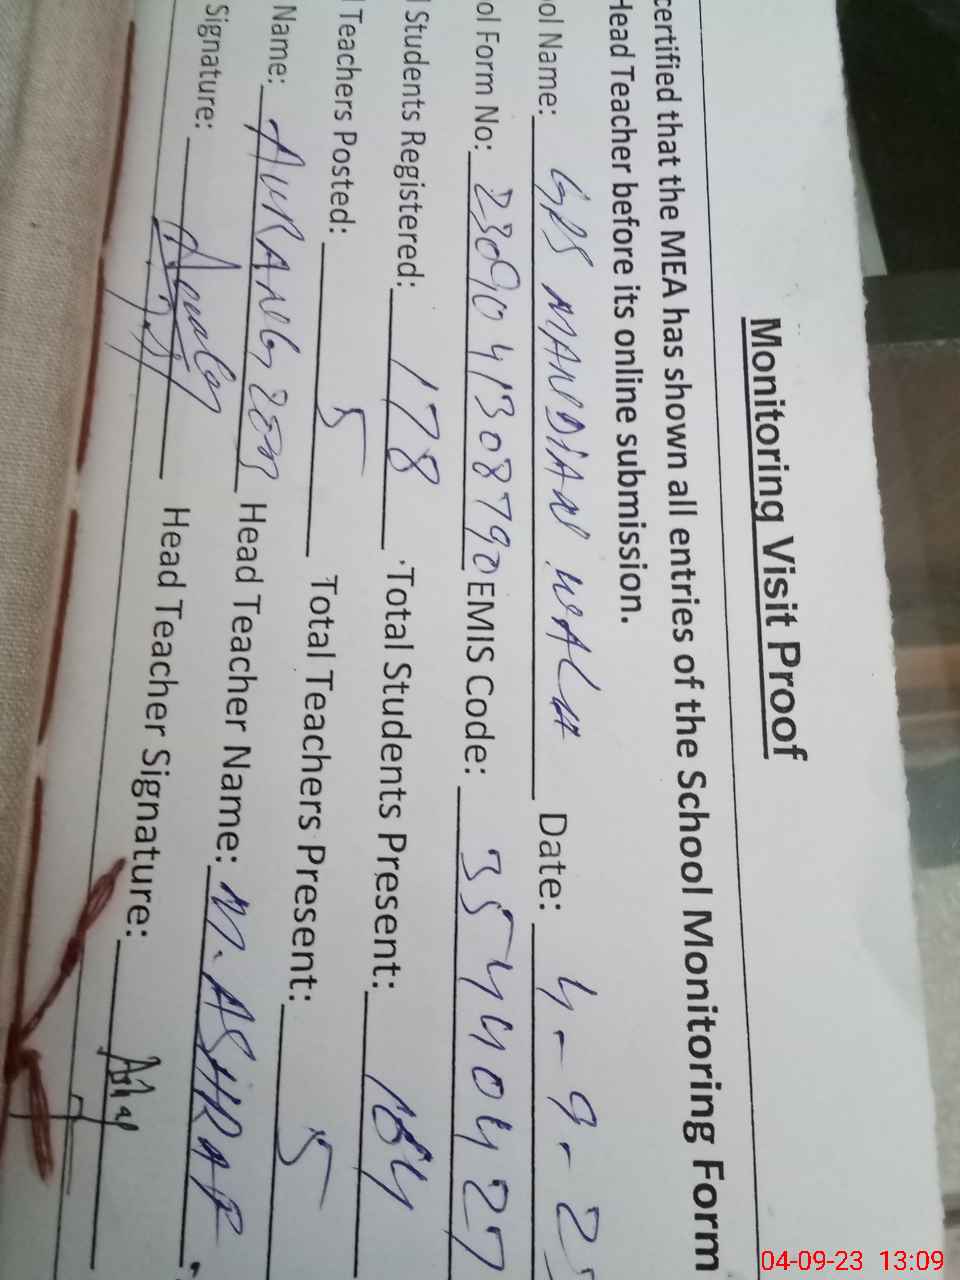 Monitoring Visit Proof
certified that the MEA has shown all entries of the School Monitoring Form
Head Teacher before its online submission.
ool Name: GPS MANDIAN WALA Date: 4-9-23
ool Form No: 2309041308790 EMIS Code: 35440427
l Students Registered: 178 Total Students Present: 164
l Teachers Posted: 5 Total Teachers Present: 5
Name: AURANGZEB Head Teacher Name: M. ASHRAF
Signature: Head Teacher Signature:
04-09-23 13:09